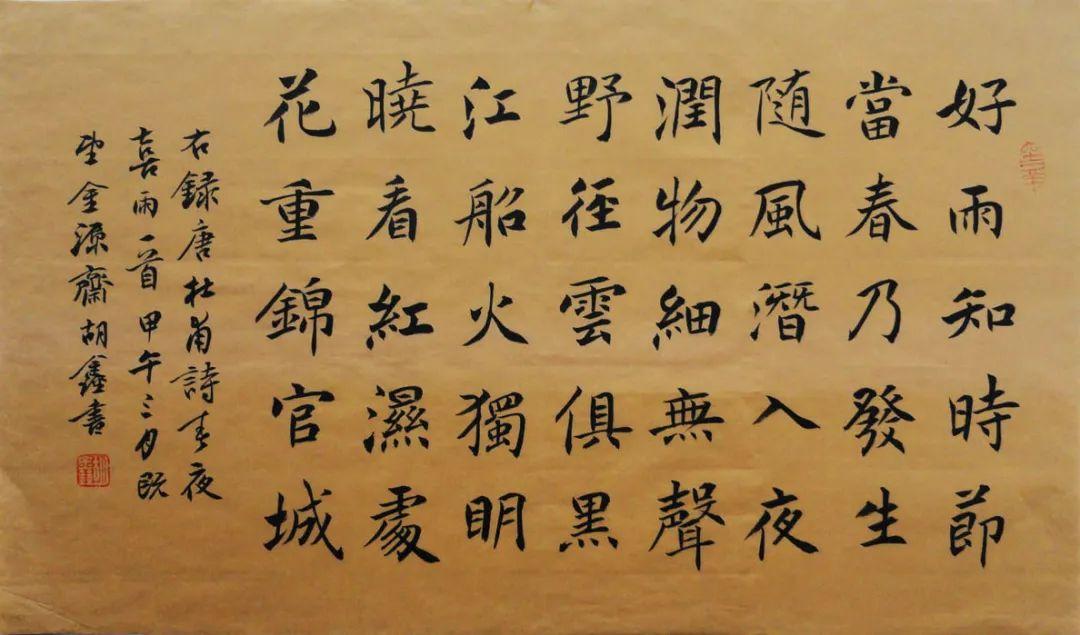 好雨知時節
當春乃發生
随風潛入夜
潤物細無聲
野徑雲俱黑
江船火獨明
曉看紅濕處
花重錦官城
右録唐杜甫詩春夜
喜雨一首甲午三月既
望金源齋胡鑫書